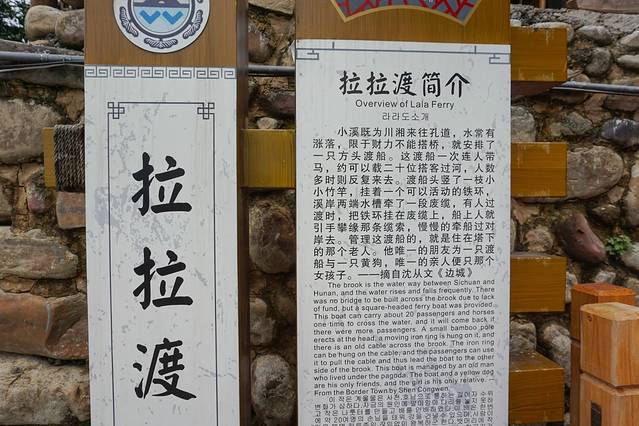 拉拉渡
拉拉渡简介
Overview of Lala Ferry
라라도소개
小溪既为川湘来往孔道，水常有
涨落，限于财力不能搭桥，就安排了
一只方头渡船。这渡船一次连人带
马，约可以载二十位搭客过河，人数
多时则反复来去。渡船头竖了一枝小
小竹竿，挂着一个可以活动的铁环，
溪岸两端水槽牵了一段废缆，有人过
渡时，把铁环挂在废缆上，船上人就
引手攀缘那条缆索，慢慢的牵船过对
岸去。管理这渡船的，就是住在塔下
的那个老人。他唯一的朋友为一只渡
船与一只黄狗，唯一的亲人便只那个
女孩子。——摘自沈从文《边城》
The brook is the water way between Sichuan and
Hunan, and the water rises and falls frequently. There
was no bridge to be built across the brook due to lack
of fund, but a square-headed ferry boat was provided.
This boat can carry about 20 passengers and horses
one time to cross the water, and it will come back if
there were more passengers. A small bamboo pole
erects at the head, a moving iron ring is hung on it, and
there is an old cable across the brook. The iron ring
can be hung on the cable, and the passengers can use
it to pull the cable and thus lead the boat to the other
side of the brook. This boat is managed by an old man
who lived under the pagoda. The boat and a yellow dog
are his only friends, and the girl is his only relative. —
From the Border Town by Shen Congwen.